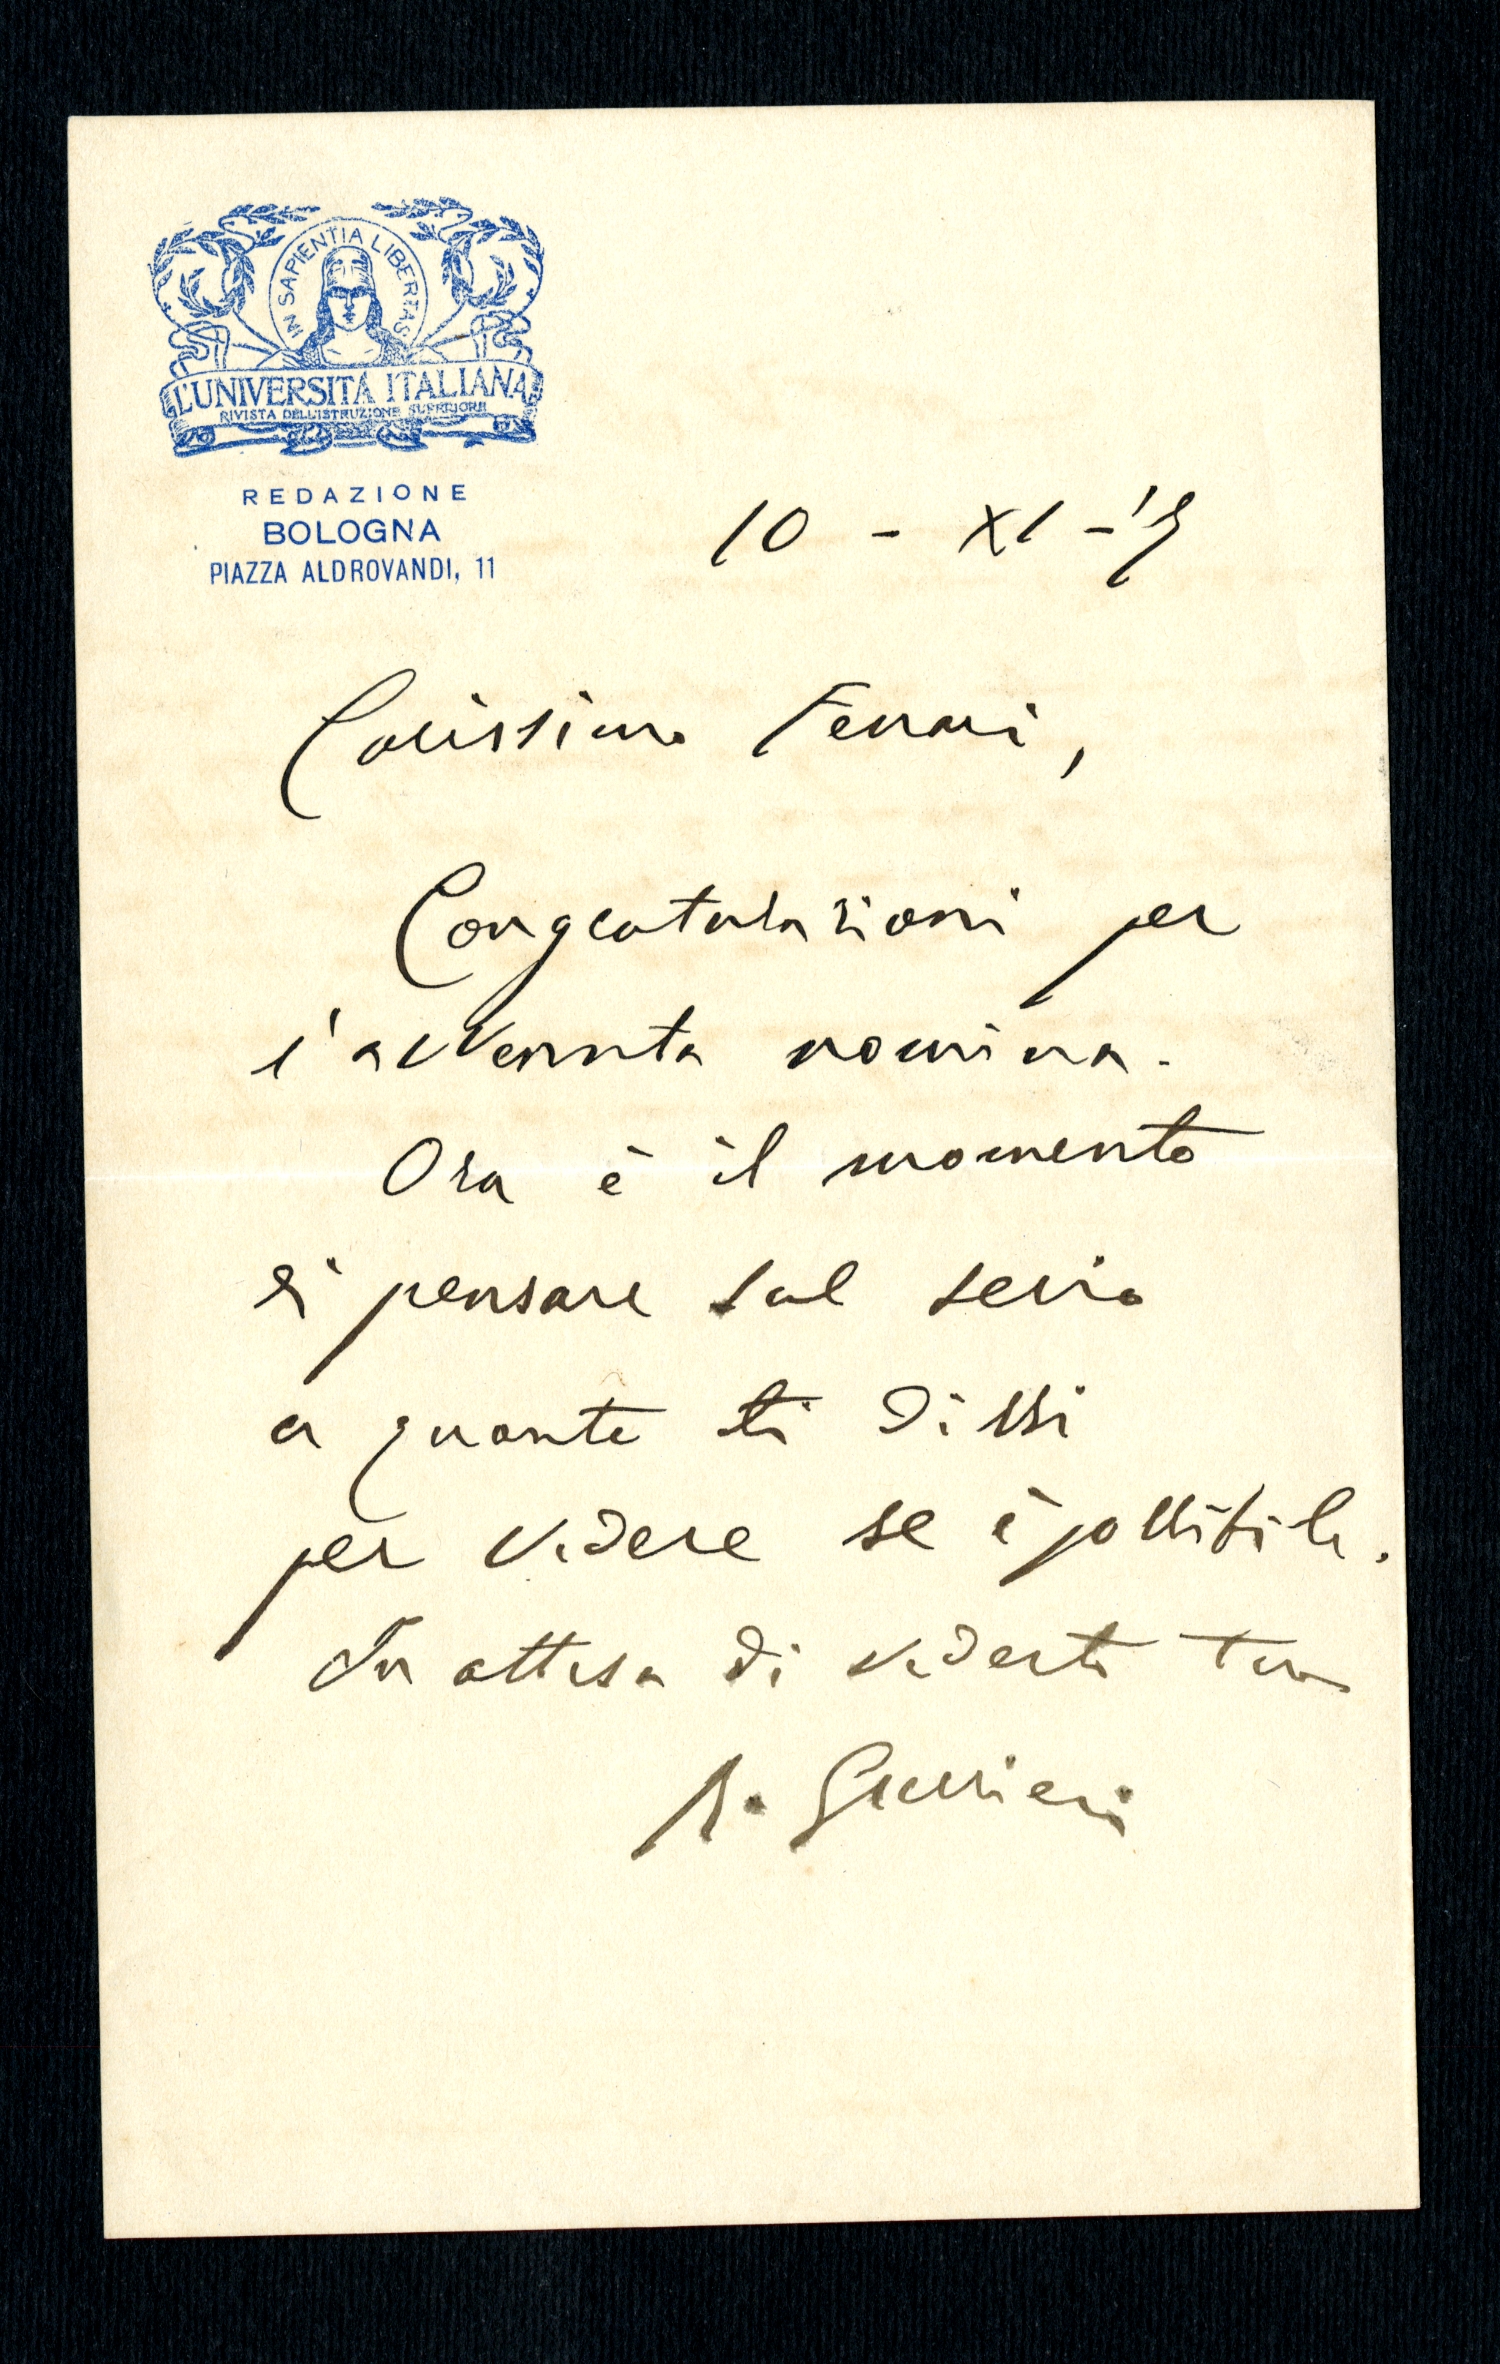 IN SAPIENTIA LIBERTAS
L'UNIVERSITÀ ITALIANA
RIVISTA DELL'ISTRUZIONE SUPERIORE
REDAZIONE
BOLOGNA
PIAZZA ALDROVANDI, 11
10 - XI -
Carissimo Ferrari,
Congratulazioni per
l'avvenuta nomina.
Ora è il momento
di pensare sul serio
a quanto ti dissi
per vedere se è possibile.
In attesa di vederti tuo